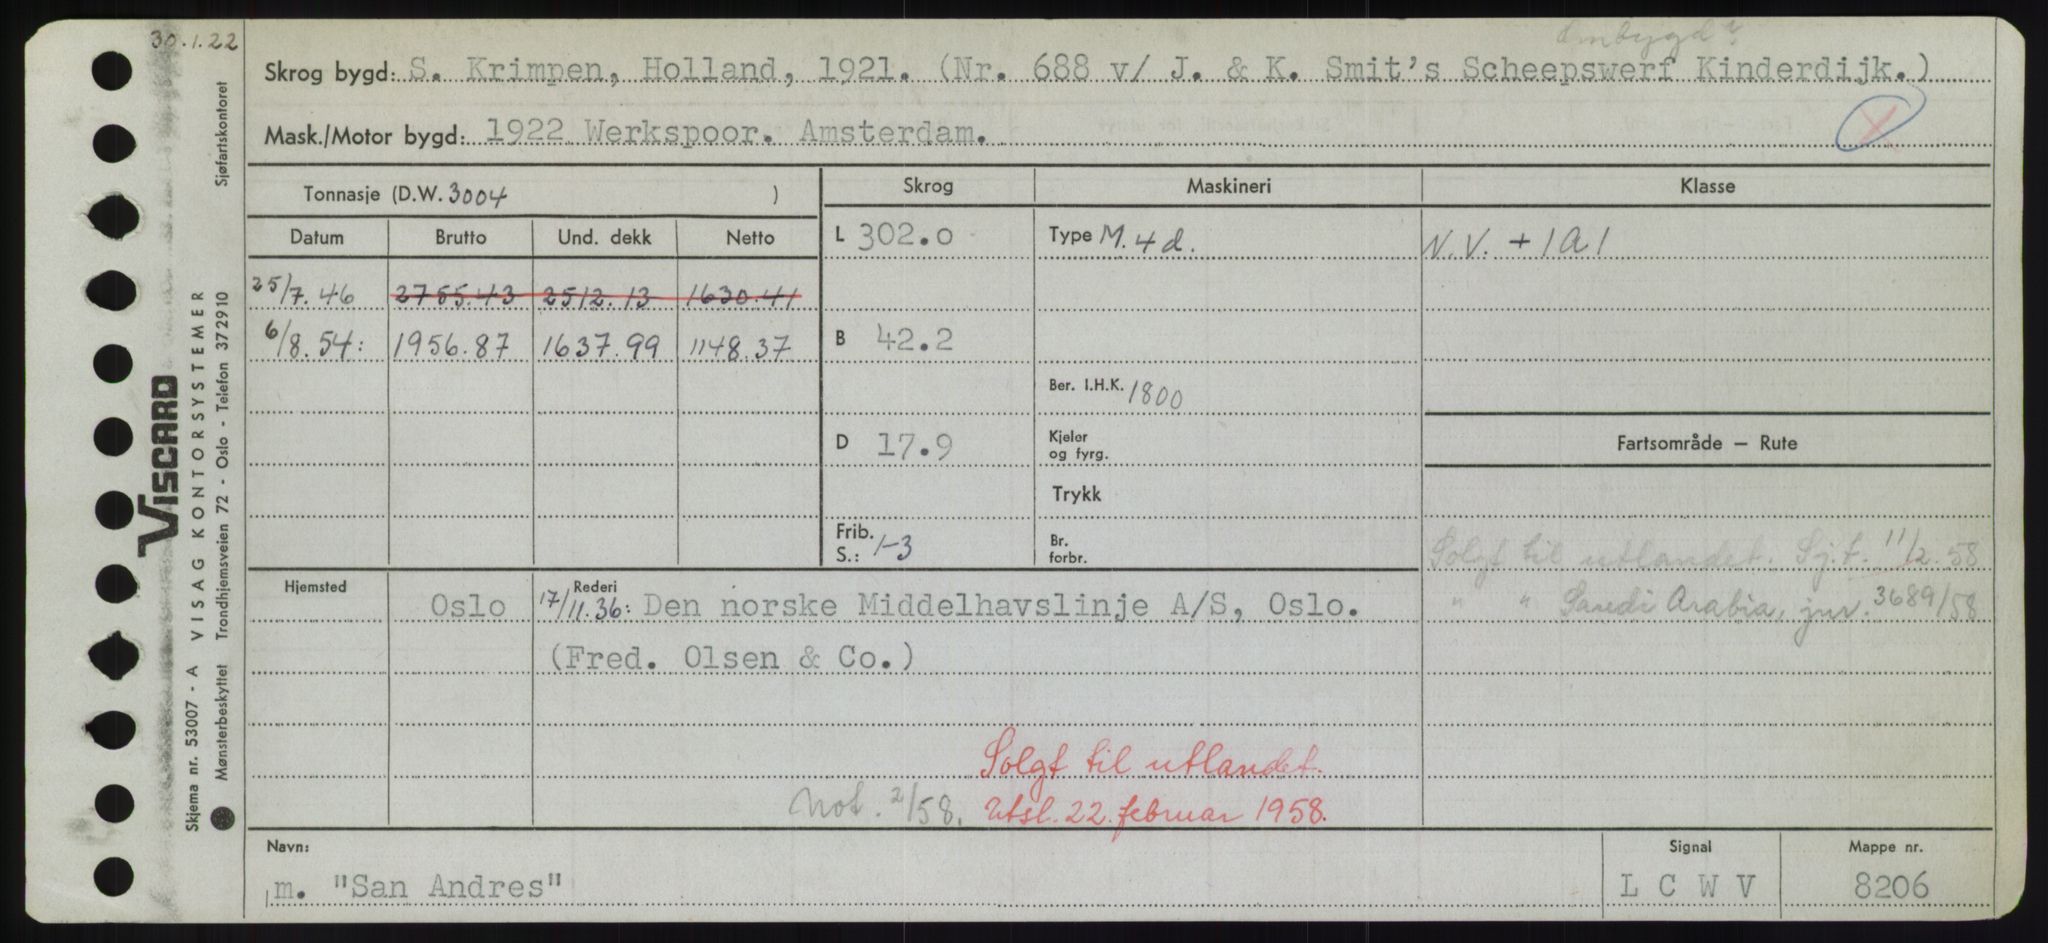 30.1.22
Ombygd?
Skrog bygd: S. Krimpen, Holland, 1921. (Nr. 688 v/ J. & K. Smit's Scheepswerf Kinderdijk.)
Mask./Motor bygd: 1922 Werkspoor. Amsterdam.
X
Tonnasje (D.W. 3004 )
Skrog Maskineri Klasse
Datum Brutto Und. dekk Netto
L 302.0 Type M. 4 d. N.V. + 1 A 1
25/7. 46 2755.43 2512.13 1630.41
6/8. 54: 1956.87 1637.99 1148.37
B 42.2
Ber. I.H.K. 1800
D 17.9
Kjeler og fyrg.
Fartsområde – Rute
Trykk
Frib. S.: 1-3
Br. forbr.
Solgt til utlandet. Sj.f. 11/2. 58
" " Saudi Arabia, jnr. 3689/58
Hjemsted Rederi
Oslo 17/11.36: Den norske Middelhavslinje A/S, Oslo.
(Fred. Olsen & Co.)
Solgt til utlandet.
Not. 2/58. Utsl. 22. februar 1958.
Navn: Signal Mappe nr.
m. "San Andres" L C W V 8206
Viscard
Skjema nr. 53007 - A VISAG KONTORSYSTEMER
Mønsterbeskyttet Trondhjemsveien 72 - Oslo - Telefon 372910 Sjøfartskontoret